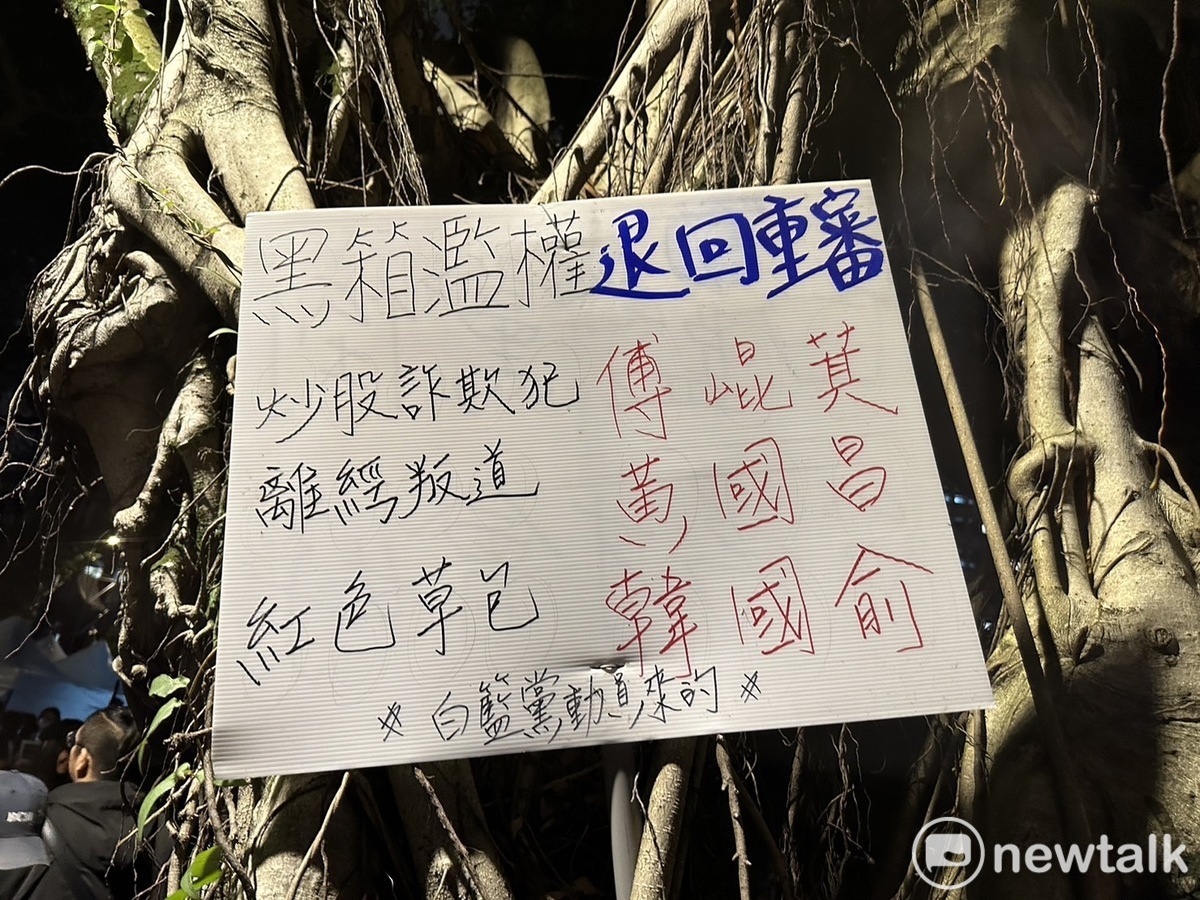 黑箱濫權退回重審
炒股詐欺犯 傅崐萁
離經叛道 黃國昌
紅色草包 韓國俞
※白籃黨動員來的※
newtalk